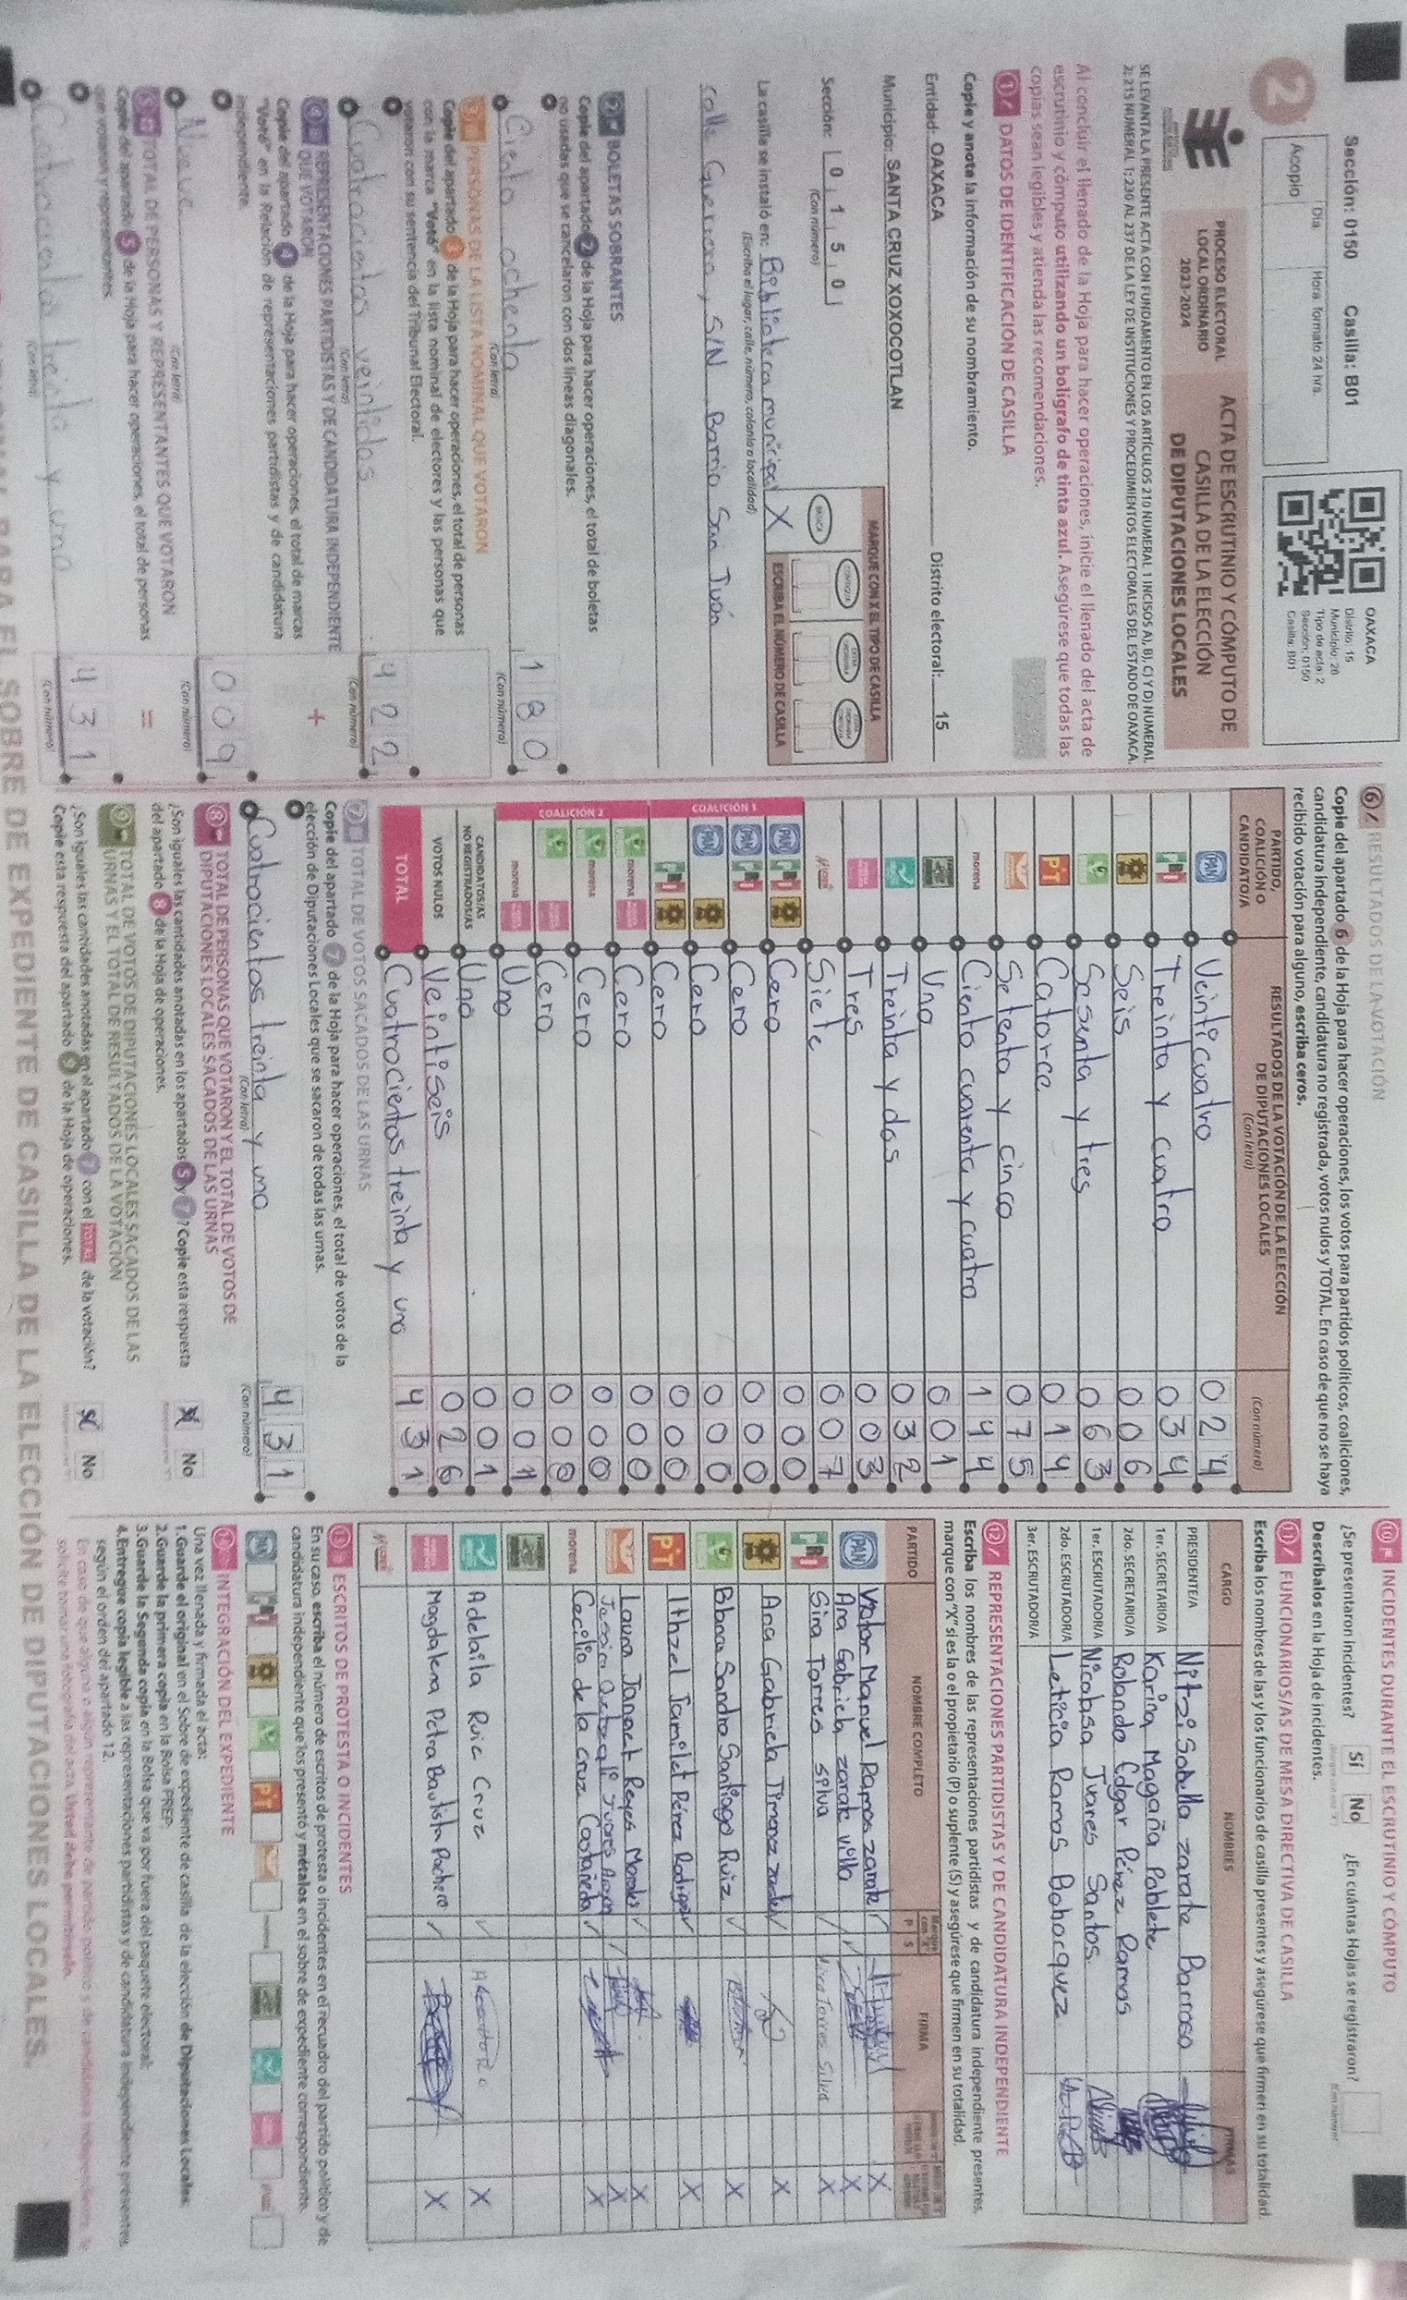 Sección: 0150 Casilla: B01
Día Hora formato 24 hrs.
Acopio
2
OAXACA
Distrito: 15
Municipio: 26
Tipo de acta: 2
Sección: 0150
Casilla: B01
PROCESO ELECTORAL
LOCAL ORDINARIO
2023-2024
ACTA DE ESCRUTINIO Y CÓMPUTO DE
CASILLA DE LA ELECCIÓN
DE DIPUTACIONES LOCALES
SE LEVANTA LA PRESENTE ACTA CON FUNDAMENTO EN LOS ARTÍCULOS 210 NUMERAL 1 INCISOS A), B), C) Y D) NUMERAL
2; 215 NUMERAL 1; 230 AL 237 DE LA LEY DE INSTITUCIONES Y PROCEDIMIENTOS ELECTORALES DEL ESTADO DE OAXACA.
Al concluir el llenado de la Hoja para hacer operaciones, inicie el llenado del acta de
escrutinio y cómputo utilizando un bolígrafo de tinta azul. Asegúrese que todas las
copias sean legibles y atienda las recomendaciones.
1 DATOS DE IDENTIFICACIÓN DE CASILLA
Copie y anote la información de su nombramiento.
Entidad: OAXACA Distrito electoral: 15
Municipio: SANTA CRUZ XOXOCOTLAN
Sección: 0 1 5 0
(Con número)
MARQUE CON X EL TIPO DE CASILLA
BÁSICA
ESCRIBA EL NÚMERO DE CASILLA
La casilla se instaló en: Biblioteca municipal X
(Escriba el lugar, calle, número, colonia o localidad)
calle Guerrero, S/N Barrio San Juan
2 BOLETAS SOBRANTES
Copie del apartado 2 de la Hoja para hacer operaciones, el total de boletas
no usadas que se cancelaron con dos líneas diagonales.
Ciento ochenta 1 8 0
(Con letra) (Con número)
3 PERSONAS DE LA LISTA NOMINAL QUE VOTARON
Copie del apartado 3 de la Hoja para hacer operaciones, el total de personas
con la marca "Votó" en la lista nominal de electores y las personas que
votaron con su sentencia del Tribunal Electoral.
Cuatrocientos veintidos 4 2 2
(Con letra) (Con número)
4 REPRESENTACIONES PARTIDISTAS Y DE CANDIDATURA INDEPENDIENTE
QUE VOTARON +
Copie del apartado 4 de la Hoja para hacer operaciones, el total de marcas
"Votó" en la Relación de representaciones partidistas y de candidatura
independiente.
Nueve 0 0 9
(Con letra) (Con número)
5 TOTAL DE PERSONAS Y REPRESENTANTES QUE VOTARON =
Copie del apartado 5 de la Hoja para hacer operaciones, el total de personas
que votaron y representantes.
Cuatrocientos treinta y uno 4 3 1
(Con letra) (Con número)
6 RESULTADOS DE LA VOTACIÓN
Copie del apartado 6 de la Hoja para hacer operaciones, los votos para partidos políticos, coaliciones,
candidatura independiente, candidatura no registrada, votos nulos y TOTAL. En caso de que no se haya
recibido votación para alguno, escriba ceros.
PARTIDO,
COALICIÓN O
CANDIDATO/A
RESULTADOS DE LA VOTACIÓN DE LA ELECCIÓN
DE DIPUTACIONES LOCALES
(Con letra) (Con número)
PAN Veinticuatro 0 2 4
PRI Treinta y cuatro 0 3 4
Seis 0 0 6
Sesenta y tres 0 6 3
PT Catorce 0 1 4
Setenta y cinco 0 7 5
morena Ciento cuarenta y cuatro 1 4 4
Uno 0 0 1
Treinta y dos 0 3 2
Tres 0 0 3
Siete 0 0 7
COALICIÓN 1
PAN PRI Cero 0 0 0
PAN PRI Cero 0 0 0
PAN Cero 0 0 0
PRI Cero 0 0 0
COALICIÓN 2
morena Cero 0 0 0
morena Cero 0 0 0
Cero 0 0 0
morena Uno 0 0 1
CANDIDATOS/AS
NO REGISTRADOS/AS Uno 0 0 1
VOTOS NULOS Veintiseis 0 2 6
TOTAL Cuatrocientos treinta y uno 4 3 1
7 TOTAL DE VOTOS SACADOS DE LAS URNAS
Copie del apartado 7 de la Hoja para hacer operaciones, el total de votos de la
elección de Diputaciones Locales que se sacaron de todas las urnas.
Cuatrocientos treinta y uno 4 3 1
(Con letra) (Con número)
8 TOTAL DE PERSONAS QUE VOTARON Y EL TOTAL DE VOTOS DE
DIPUTACIONES LOCALES SACADOS DE LAS URNAS
¿Son iguales las cantidades anotadas en los apartados 5 y 7? Copie esta respuesta
del apartado 8 de la Hoja de operaciones. No
9 TOTAL DE VOTOS DE DIPUTACIONES LOCALES SACADOS DE LAS
URNAS Y EL TOTAL DE RESULTADOS DE LA VOTACIÓN
¿Son iguales las cantidades anotadas en el apartado 7 con el TOTAL de la votación?
Copie esta respuesta del apartado 9 de la Hoja de operaciones. No
10 INCIDENTES DURANTE EL ESCRUTINIO Y CÓMPUTO
¿Se presentaron incidentes? Sí No ¿En cuántas Hojas se registraron?
Descríbalos en la Hoja de incidentes.
11 FUNCIONARIOS/AS DE MESA DIRECTIVA DE CASILLA
Escriba los nombres de las y los funcionarios de casilla presentes y asegúrese que firmen en su totalidad.
CARGO NOMBRES FIRMAS
PRESIDENTE/A Nitzi Sabella zarate Barroso
1er. SECRETARIO/A Karina Magaña Poblete
2do. SECRETARIO/A Rolando Edgar Pérez Ramos
1er. ESCRUTADOR/A Nicolasa Juares Santos.
2do. ESCRUTADOR/A Leticia Ramos Bohorquez
3er. ESCRUTADOR/A
12 REPRESENTACIONES PARTIDISTAS Y DE CANDIDATURA INDEPENDIENTE
Escriba los nombres de las representaciones partidistas y de candidatura independiente presentes,
marque con "X" si es la o el propietario (P) o suplente (S) y asegúrese que firmen en su totalidad.
PARTIDO NOMBRE COMPLETO P S FIRMA
PAN Victor Manuel Ramos zarate X
Ana Gabriela zarate villa X
PRI Sira Torres silva X
Ana Gabriela Jimenez X
Blanca Sandra Santiago Ruiz X
PT Ithzel Jamilet Pérez Rodriguez X
Laura Janact Reyes Morales X
Jessica X
morena Cecilia de la cruz Castañeda X
Adelaila Ruiz Cruz X
Magdalena Petra Bautista Pachero X
13 ESCRITOS DE PROTESTA O INCIDENTES
En su caso, escriba el número de escritos de protesta o incidentes en el recuadro del partido político y de
candidatura independiente que los presentó y métalos en el sobre de expediente correspondiente.
14 INTEGRACIÓN DEL EXPEDIENTE
Una vez llenada y firmada el acta:
1. Guarde el original en el Sobre de expediente de casilla de la elección de Diputaciones Locales.
2. Guarde la primera copia en la Bolsa PREP.
3. Guarde la Segunda copia en la Bolsa que va por fuera del paquete electoral.
4. Entregue copia legible a las representaciones partidistas y de candidatura independiente presentes,
según el orden del apartado 12.
PARA EL SOBRE DE EXPEDIENTE DE CASILLA DE LA ELECCIÓN DE DIPUTACIONES LOCALES.